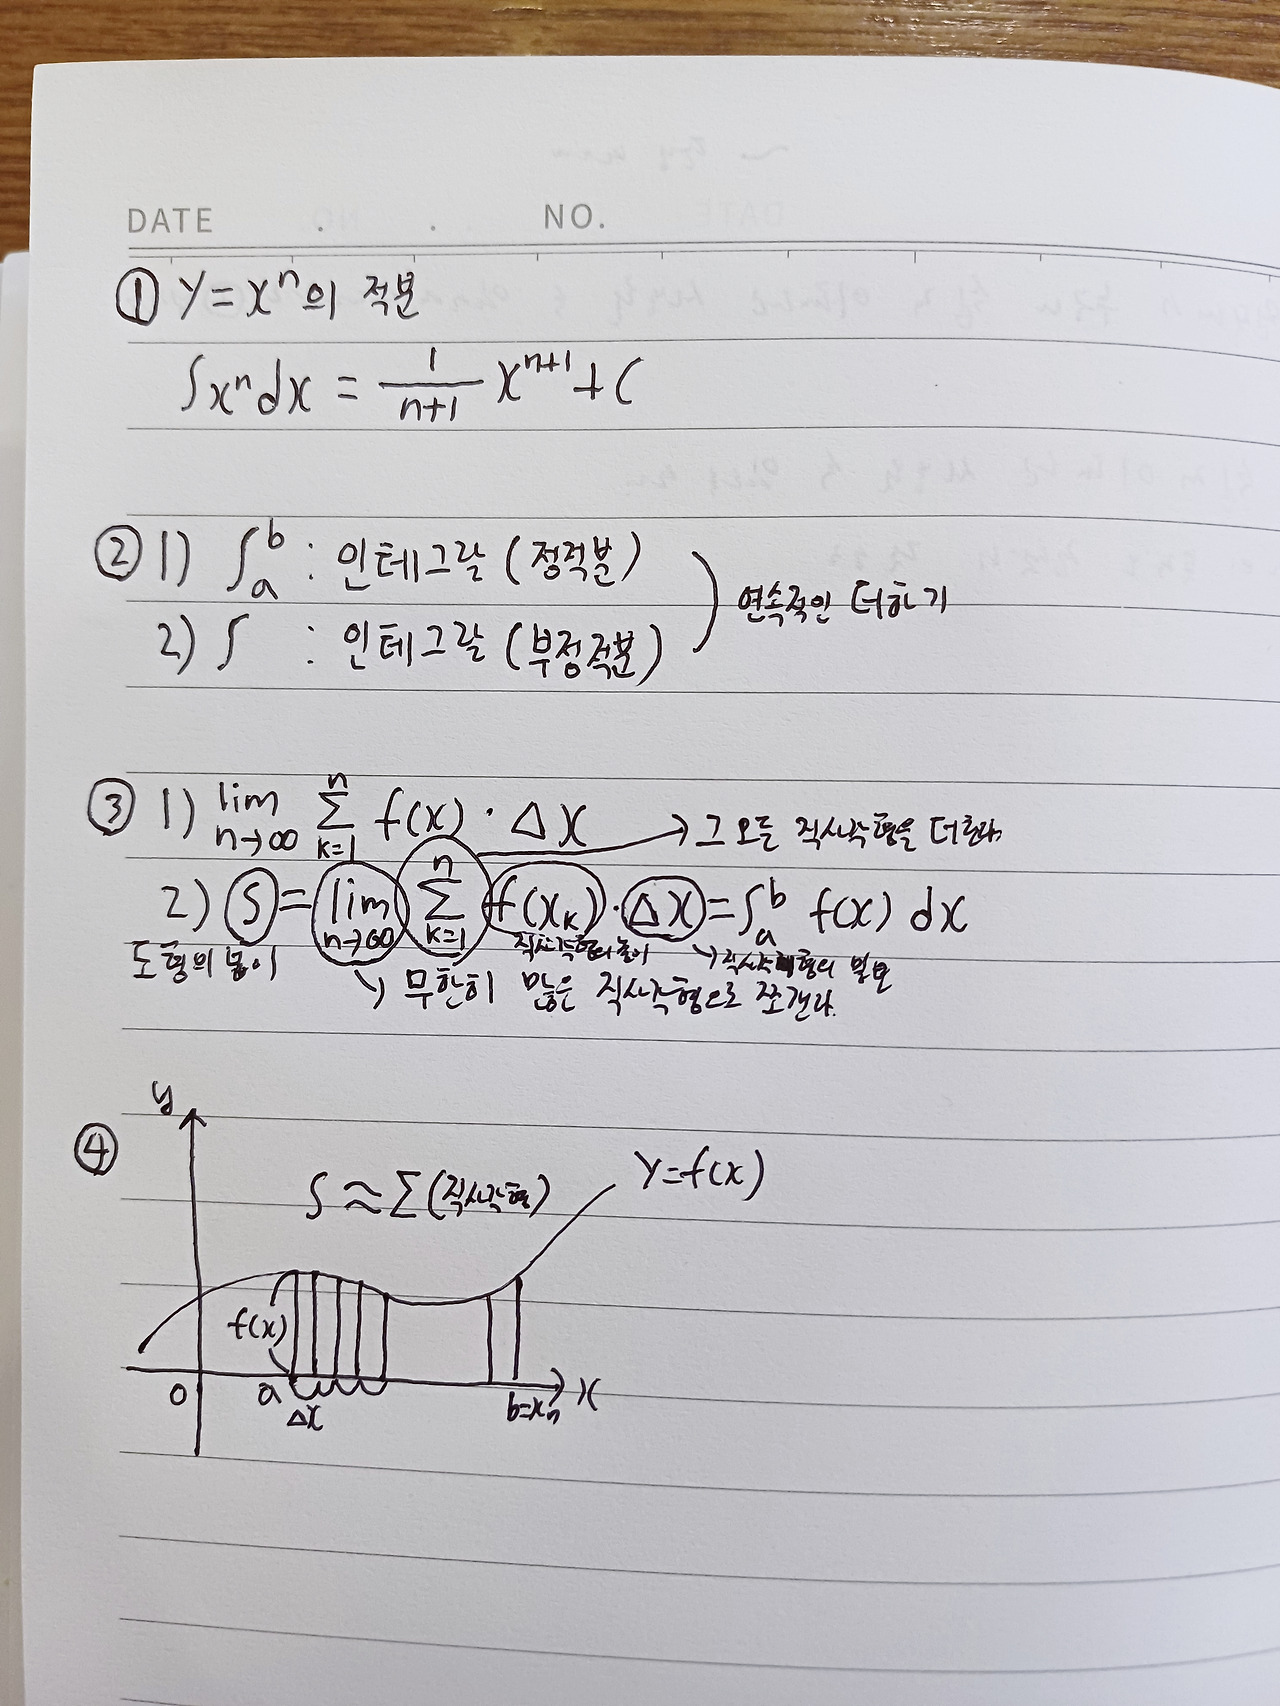 DATE . . NO.
① y=xⁿ의 적분
∫xⁿdx = 1/(n+1) xⁿ⁺¹+C
② 1) ∫ₐᵇ : 인테그랄 (정적분)
2) ∫ : 인테그랄 (부정적분)
연속적인 더하기
③ 1) lim n→∞ Σ k=1 n f(x)·Δx
→ 그 모든 직사각형을 더한다.
2) S = lim n→∞ Σ k=1 n f(xₖ)·Δx = ∫ₐᵇ f(x) dx
도형의 넓이
직사각형의 높이
→ 직사각형의 밑변
→ 무한히 많은 직사각형으로 쪼갠다.
④
y
S≈Σ(직사각형)
y=f(x)
f(x)
0 a Δx b=xₙ x